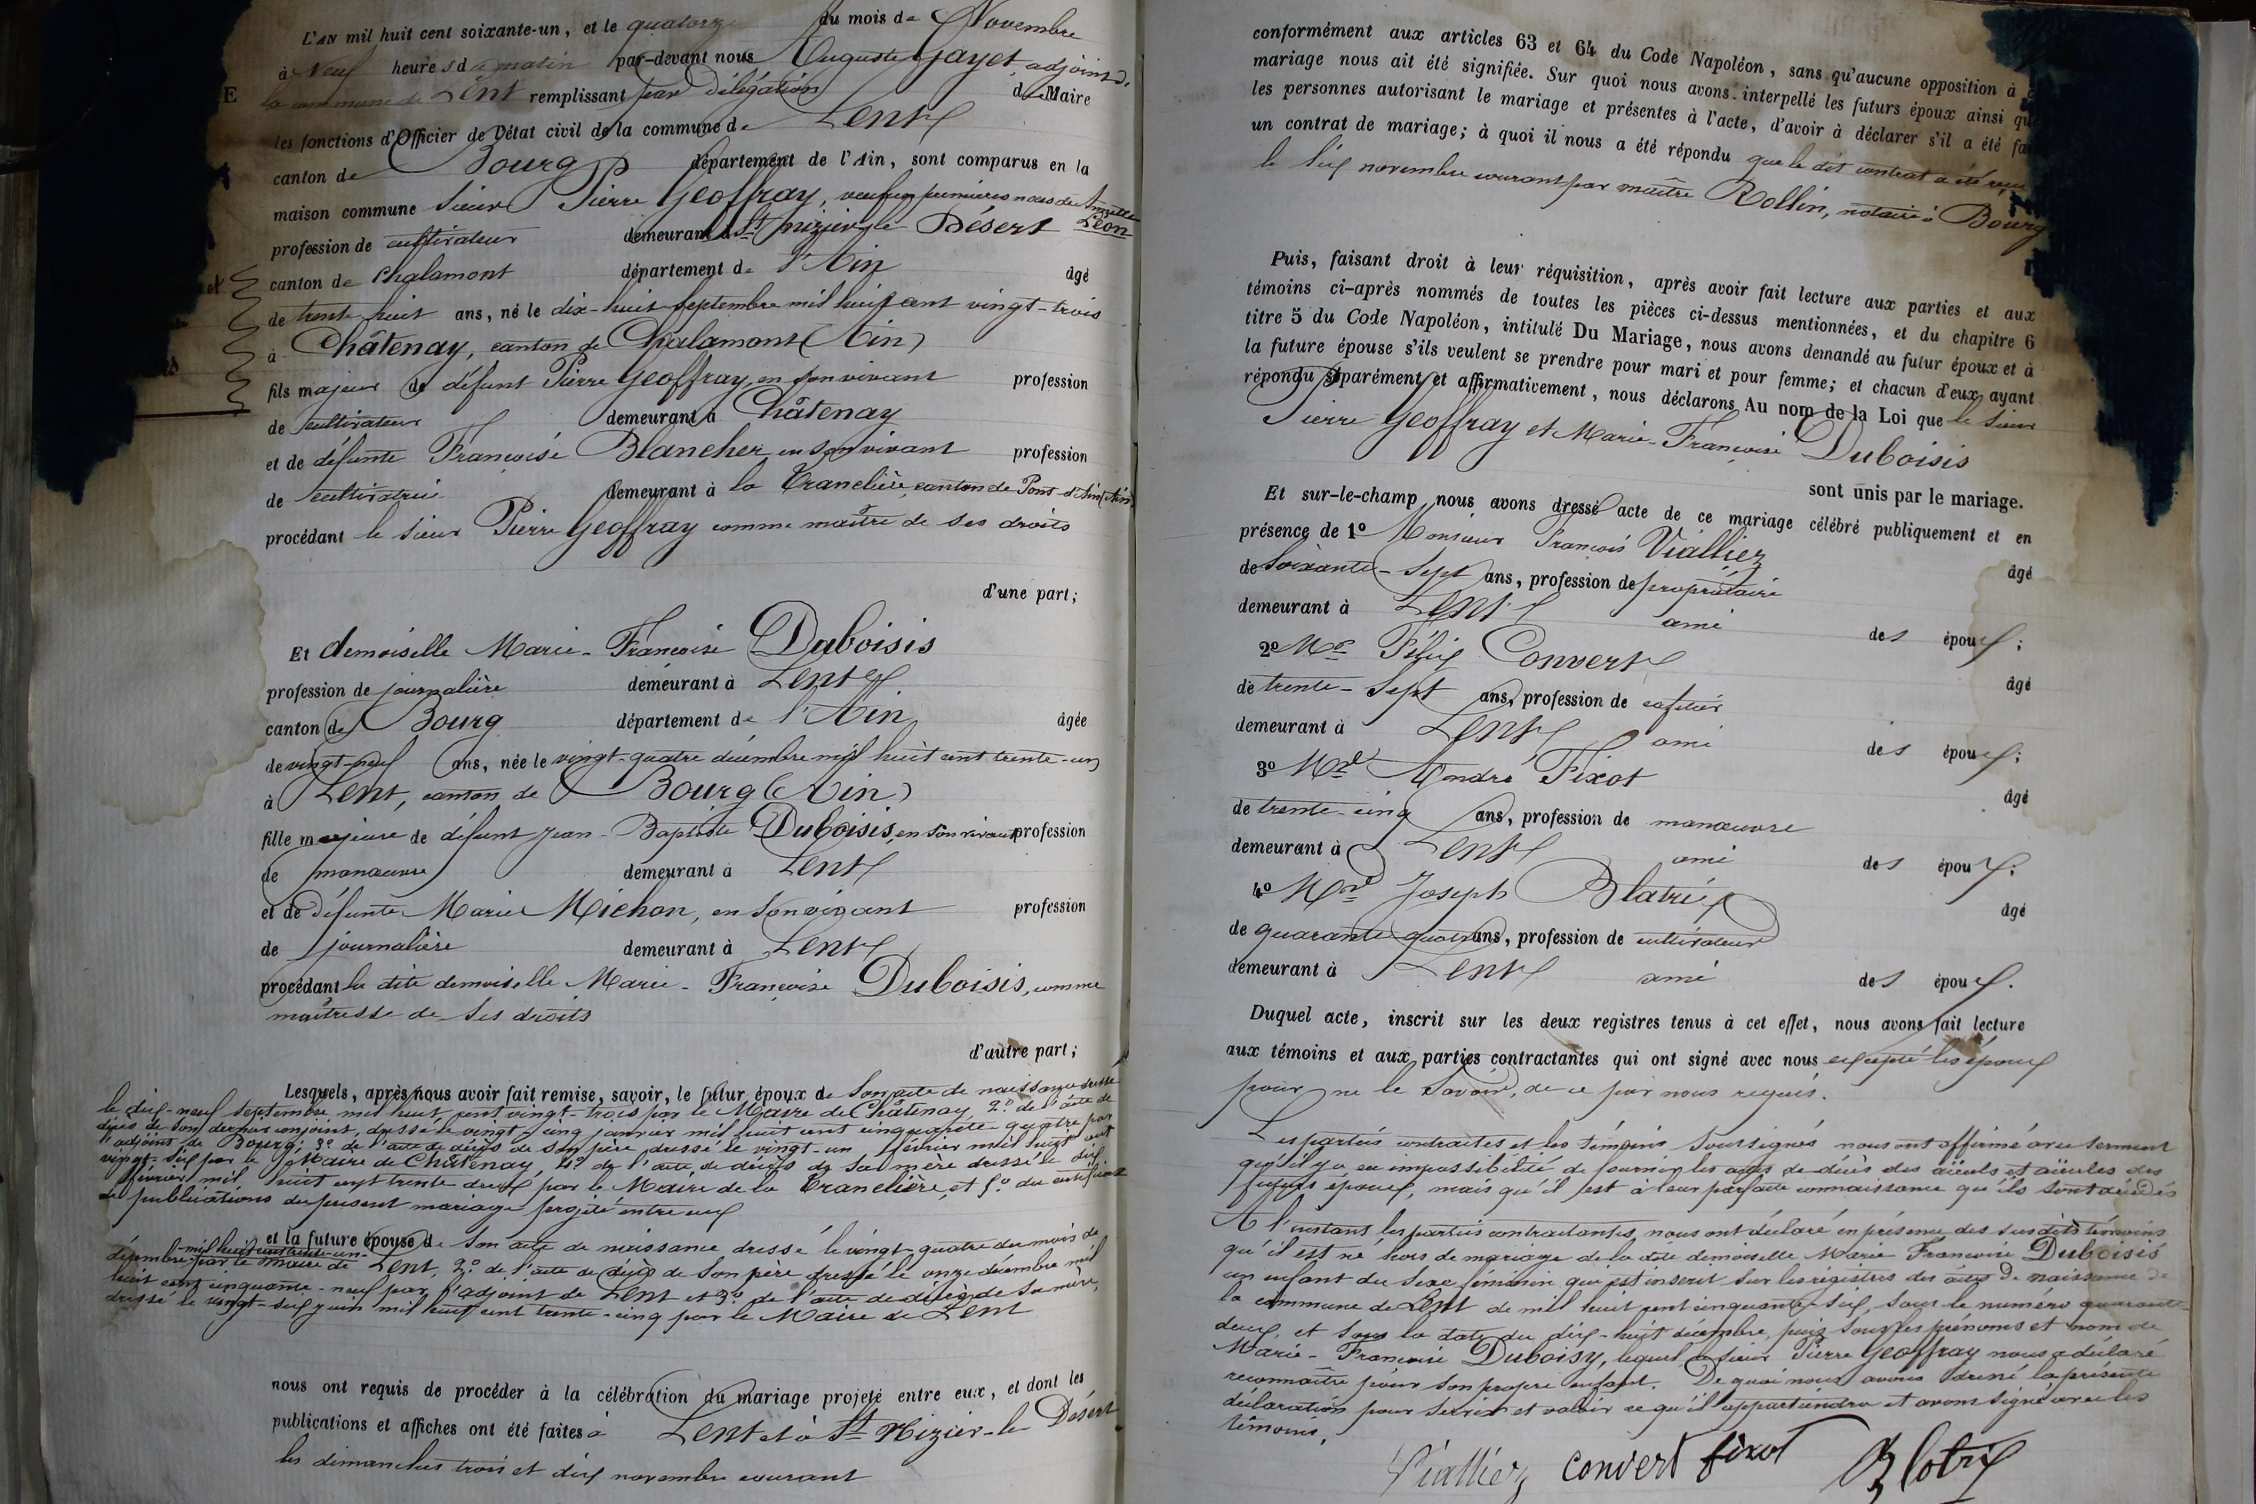 L'AN mil huit cent soixante-un, et le quatorze du mois de Novembre
à Neuf heures d u matin par-devant nous Auguste Gayet, adjoint de
la commune de Lent remplissant par délégation du Maire
les fonctions d'Officier de l'état civil de la commune de Lent
canton de Bourg département de l'Ain, sont comparus en la
maison commune sieur Pierre Geoffray, veuf en premières noces de
Léon
profession de cultivateur demeurant à St nizier le Désert
canton de Chalamont département de l'Ain âgé
de trente huit ans, né le dix-huit septembre mil huit cent vingt-trois
à Châtenay, canton de Chalamont (Ain)
fils majeur de défunt Pierre Geoffray, en son vivant profession
de cultivateur demeurant à Châtenay
et de défunte Françoise Blancher en son vivant profession
de cultivatrice demeurant à la Tranclière, canton de Pont-d'Ain (Ain)
procédant le sieur Pierre Geoffray comme maître de ses droits
d'une part;
Et demoiselle Marie-Françoise Duboisis
profession de journalière demeurant à Lent
canton de Bourg département de l'Ain âgée
de vingt-neuf ans, née le vingt-quatre décembre mil huit cent trente-un
à Lent, canton de Bourg (Ain)
fille majeure de défunt Jean-Baptiste Duboisis, en son vivant profession
de manœuvre demeurant à Lent
et de défunte Marie Michon, en son vivant profession
de journalière demeurant à Lent
procédant la dite demoiselle Marie-Françoise Duboisis, comme
maîtresse de ses droits
d'autre part;
Lesquels, après nous avoir fait remise, savoir, le futur époux de son acte de naissance dressé
le dix-neuf septembre mil huit cent vingt-trois par le Maire de Châtenay, 2º de l'acte de
décès de son dernier conjoint, dressé le vingt-cinq janvier mil huit cent cinquante quatre par
l'adjoint de Bourg; 3º de l'acte de décès de son père dressé le vingt-un février mil huit cent
vingt-six par le Maire de Châtenay, 4º de l'acte de décès de sa mère dressé le dix
février mil huit cent trente deux par le Maire de la Tranclière, et 5º du certificat
de publications du présent mariage projeté entre eux
et la future épouse de son acte de naissance dressé le vingt-quatre du mois de
décembre mil huit cent trente-un par le maire de Lent, 2º de l'acte de décès de son père dressé le onze décembre mil
huit cent cinquante-neuf par l'adjoint de Lent et 3º de l'acte de décès de sa mère,
dressé le vingt-six juin mil huit cent trente-cinq par le Maire de Lent
nous ont requis de procéder à la célébration du mariage projeté entre eux, et dont les
publications et affiches ont été faites à Lent et à St Nizier-le Désert
les dimanches trois et dix novembre courant
conformément aux articles 63 et 64 du Code Napoléon, sans qu'aucune opposition à
mariage nous ait été signifiée. Sur quoi nous avons interpellé les futurs époux ainsi qu
les personnes autorisant le mariage et présentes à l'acte, d'avoir à déclarer s'il a été fa
un contrat de mariage; à quoi il nous a été répondu que le dit contrat a été reçu
le six novembre courant par maître Rollin, notaire à Bourg
Puis, faisant droit à leur réquisition, après avoir fait lecture aux parties et aux
témoins ci-après nommés de toutes les pièces ci-dessus mentionnées, et du chapitre 6
titre 5 du Code Napoléon, intitulé Du Mariage, nous avons demandé au futur époux et à
la future épouse s'ils veulent se prendre pour mari et pour femme; et chacun d'eux ayant
répondu séparément et affirmativement, nous déclarons Au nom de la Loi que le sieur
Pierre Geoffray et Marie-Françoise Duboisis
sont unis par le mariage.
Et sur-le-champ nous avons dressé acte de ce mariage célébré publiquement et en
présence de 1º Monsieur François Viallier âgé
de soixante-sept ans, profession de propriétaire
demeurant à Lent ami des époux;
2º Mr Félix Convert âgé
de trente-sept ans, profession de cafetier
demeurant à Lent ami des époux;
3º Mr André Fixot âgé
de trente-cinq ans, profession de manœuvre
demeurant à Lent ami des époux;
4º Mr Joseph Blatrix âgé
de quarante quatre ans, profession de cultivateur
demeurant à Lent ami des époux.
Duquel acte, inscrit sur les deux registres tenus à cet effet, nous avons fait lecture
aux témoins et aux parties contractantes qui ont signé avec nous excepté les époux
pour ne le savoir, de ce par nous requis.
Les parties contractantes et les témoins soussignés nous ont affirmé avec serment
qu'il y a eu impossibilité de fournir les actes de décès des aïeuls et aïeules des
futurs époux, mais qu'il est à leur parfaite connaissance qu'ils sont décédés
A l'instant les parties contractantes nous ont déclaré en présence des susdits témoins
qu'il est né hors de mariage de la dite demoiselle Marie Françoise Duboisis
un enfant du sexe féminin qui est inscrit sur les registres des actes de naissance de
la commune de Lent de mil huit cent cinquante-six, sous le numéro quarante-
deux, et sous la date du dix-huit décembre, puis sous les prénoms et nom de
Marie-Françoise Duboisy, lequel le sieur Pierre Geoffray nous a déclaré
reconnaître pour son propre enfant. De quoi nous avons dressé la présente
déclaration pour servir et valoir ce qu'il appartiendra et avons signé avec les
témoins.
Viallier Convert fixot Blatrix